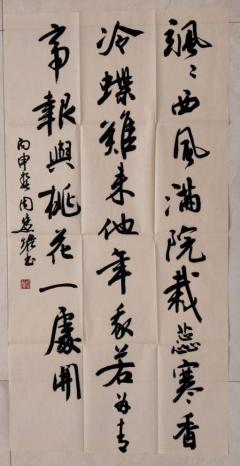 颯〻西風滿院栽蕊寒香
冷蝶難来他年我若为青
帝報與桃花一處開
丙申周书